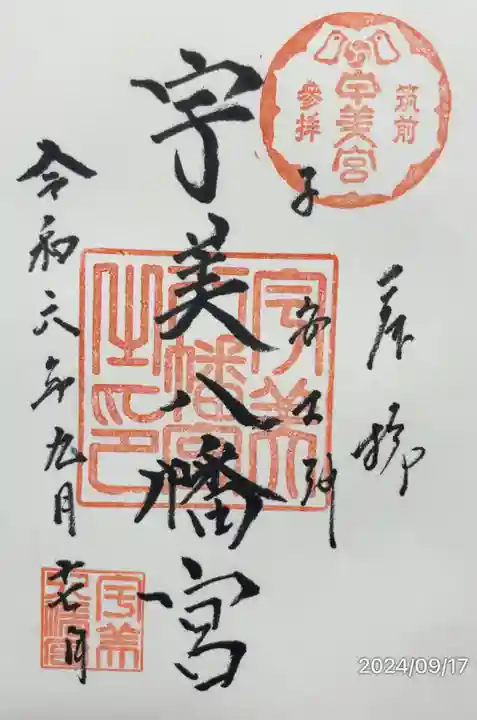 筑前
宇美宮
參拝
奉拝
子安大神
宇美八幡宮
宇美
八幡宮
之印
令和六年九月十七日
宇美
八幡宮
2024/09/17